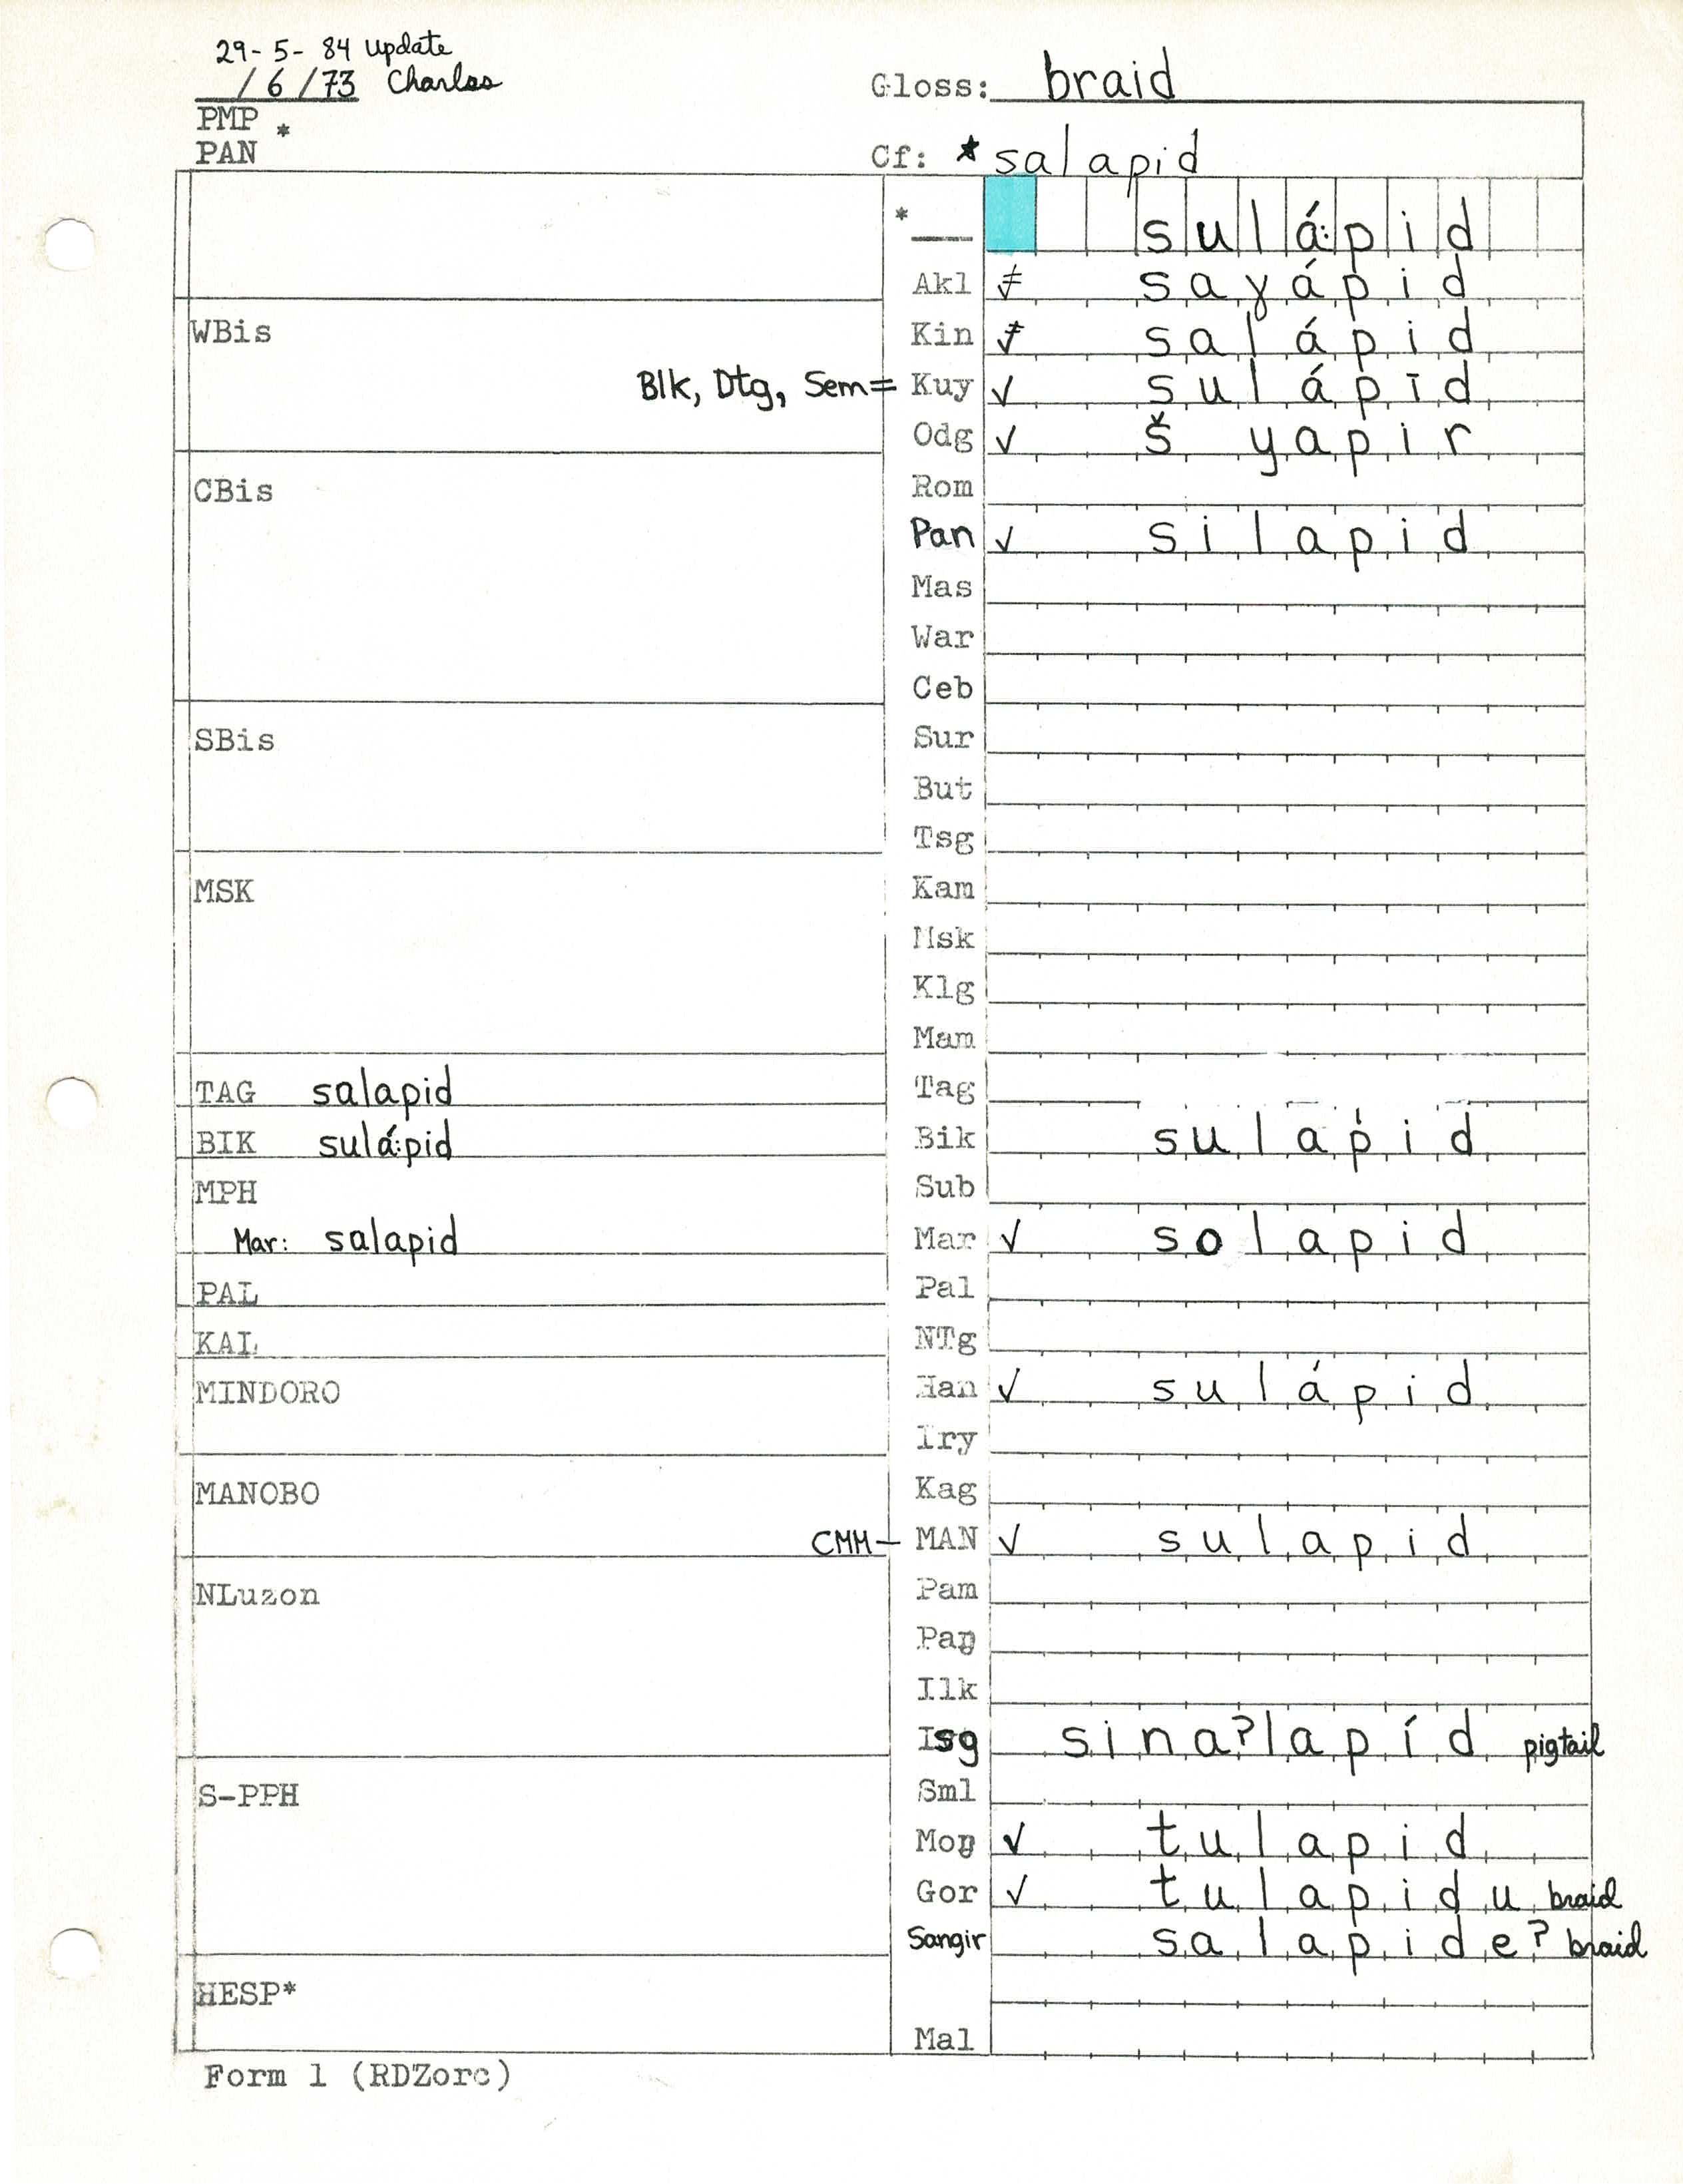 29-5-84 update
/6/73 Charles
Gloss: braid
PMP *
PAN
Cf: *salapid
* sulá:pid
Akl ≠ sayápid
WBis
Kin ≠ salápid
Blk, Dtg, Sem= Kuy ✓ sulápid
Odg ✓ š yapir
CBis
Rom
Pan ✓ silapid
Mas
War
Ceb
SBis
Sur
But
Tsg
MSK
Kam
Msk
Klg
Mam
TAG salapid
Tag
BIK sulá:pid
Bik sulapid
MPH
Sub
Mar: salapid
Mar ✓ solapid
PAL
Pal
KAL
NTg
MINDORO
Han ✓ sulápid
Iry
MANOBO
Kag
CMM- MAN ✓ sulapid
NLuzon
Pam
Paŋ
Ilk
Isg sina?lapíd pigtail
S-PPH
Sml
Moŋ ✓ tulapid
Gor ✓ tulapidu braid
Sangir salapide? braid
HESP*
Mal
Form 1 (RDZorc)